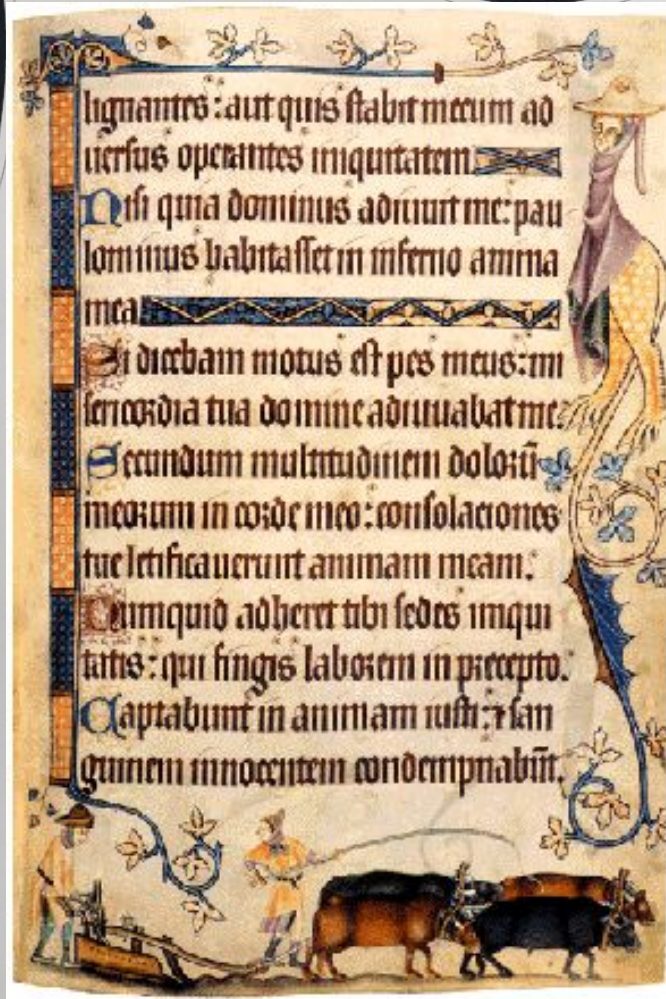 lignantes: aut quis stabit mecum ad
uersus operantes iniquitatem.
Nisi quia dominus adiuuit me: pau
lominus habitasset in inferno anima
mea
Si dicebam motus est pes meus: mi
sericordia tua domine adiuuabat me.
Secundum multitudinem dolorū
meorum in corde meo: consolaciones
tue letificauerunt animam meam.
Numquid adheret tibi sedes iniqui
tatis: qui fingis laborem in precepto.
Captabunt in animam iusti: ⁊ san
guinem innocentem condempnabūt.